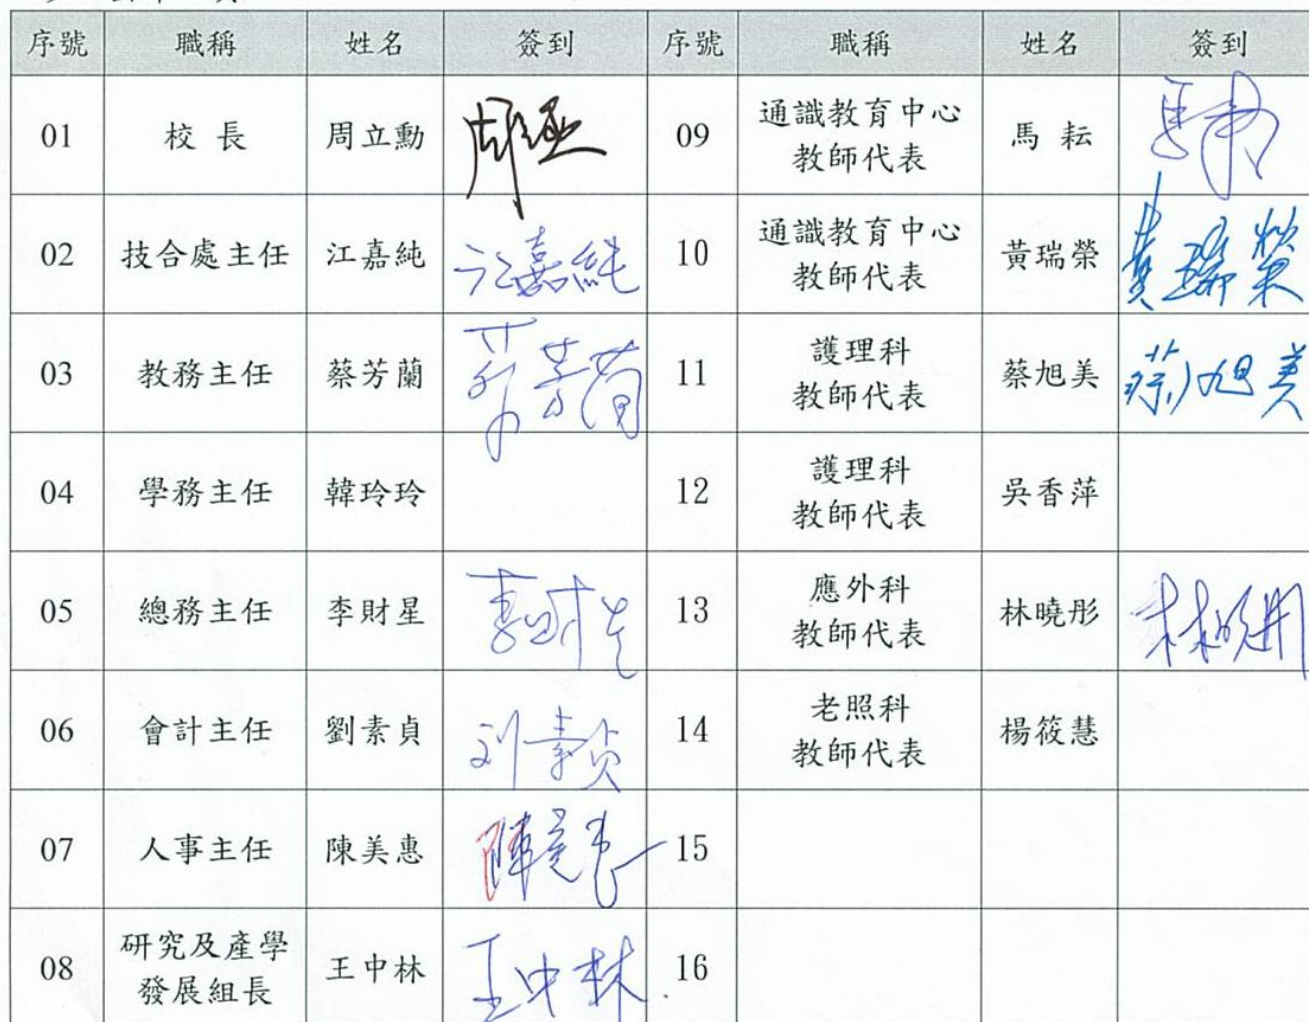 序號 職稱 姓名 簽到 序號 職稱 姓名 簽到
01 校長 周立勳 09 通識教育中心 教師代表 馬耘
02 技合處主任 江嘉純 江嘉純 10 通識教育中心 教師代表 黃瑞榮 黃瑞榮
03 教務主任 蔡芳蘭 11 護理科 教師代表 蔡旭美 蔡旭美
04 學務主任 韓玲玲 12 護理科 教師代表 吳香萍
05 總務主任 李財星 13 應外科 教師代表 林曉彤
06 會計主任 劉素貞 刘素贞 14 老照科 教師代表 楊筱慧
07 人事主任 陳美惠 15
08 研究及產學 發展組長 王中林 王中林 16